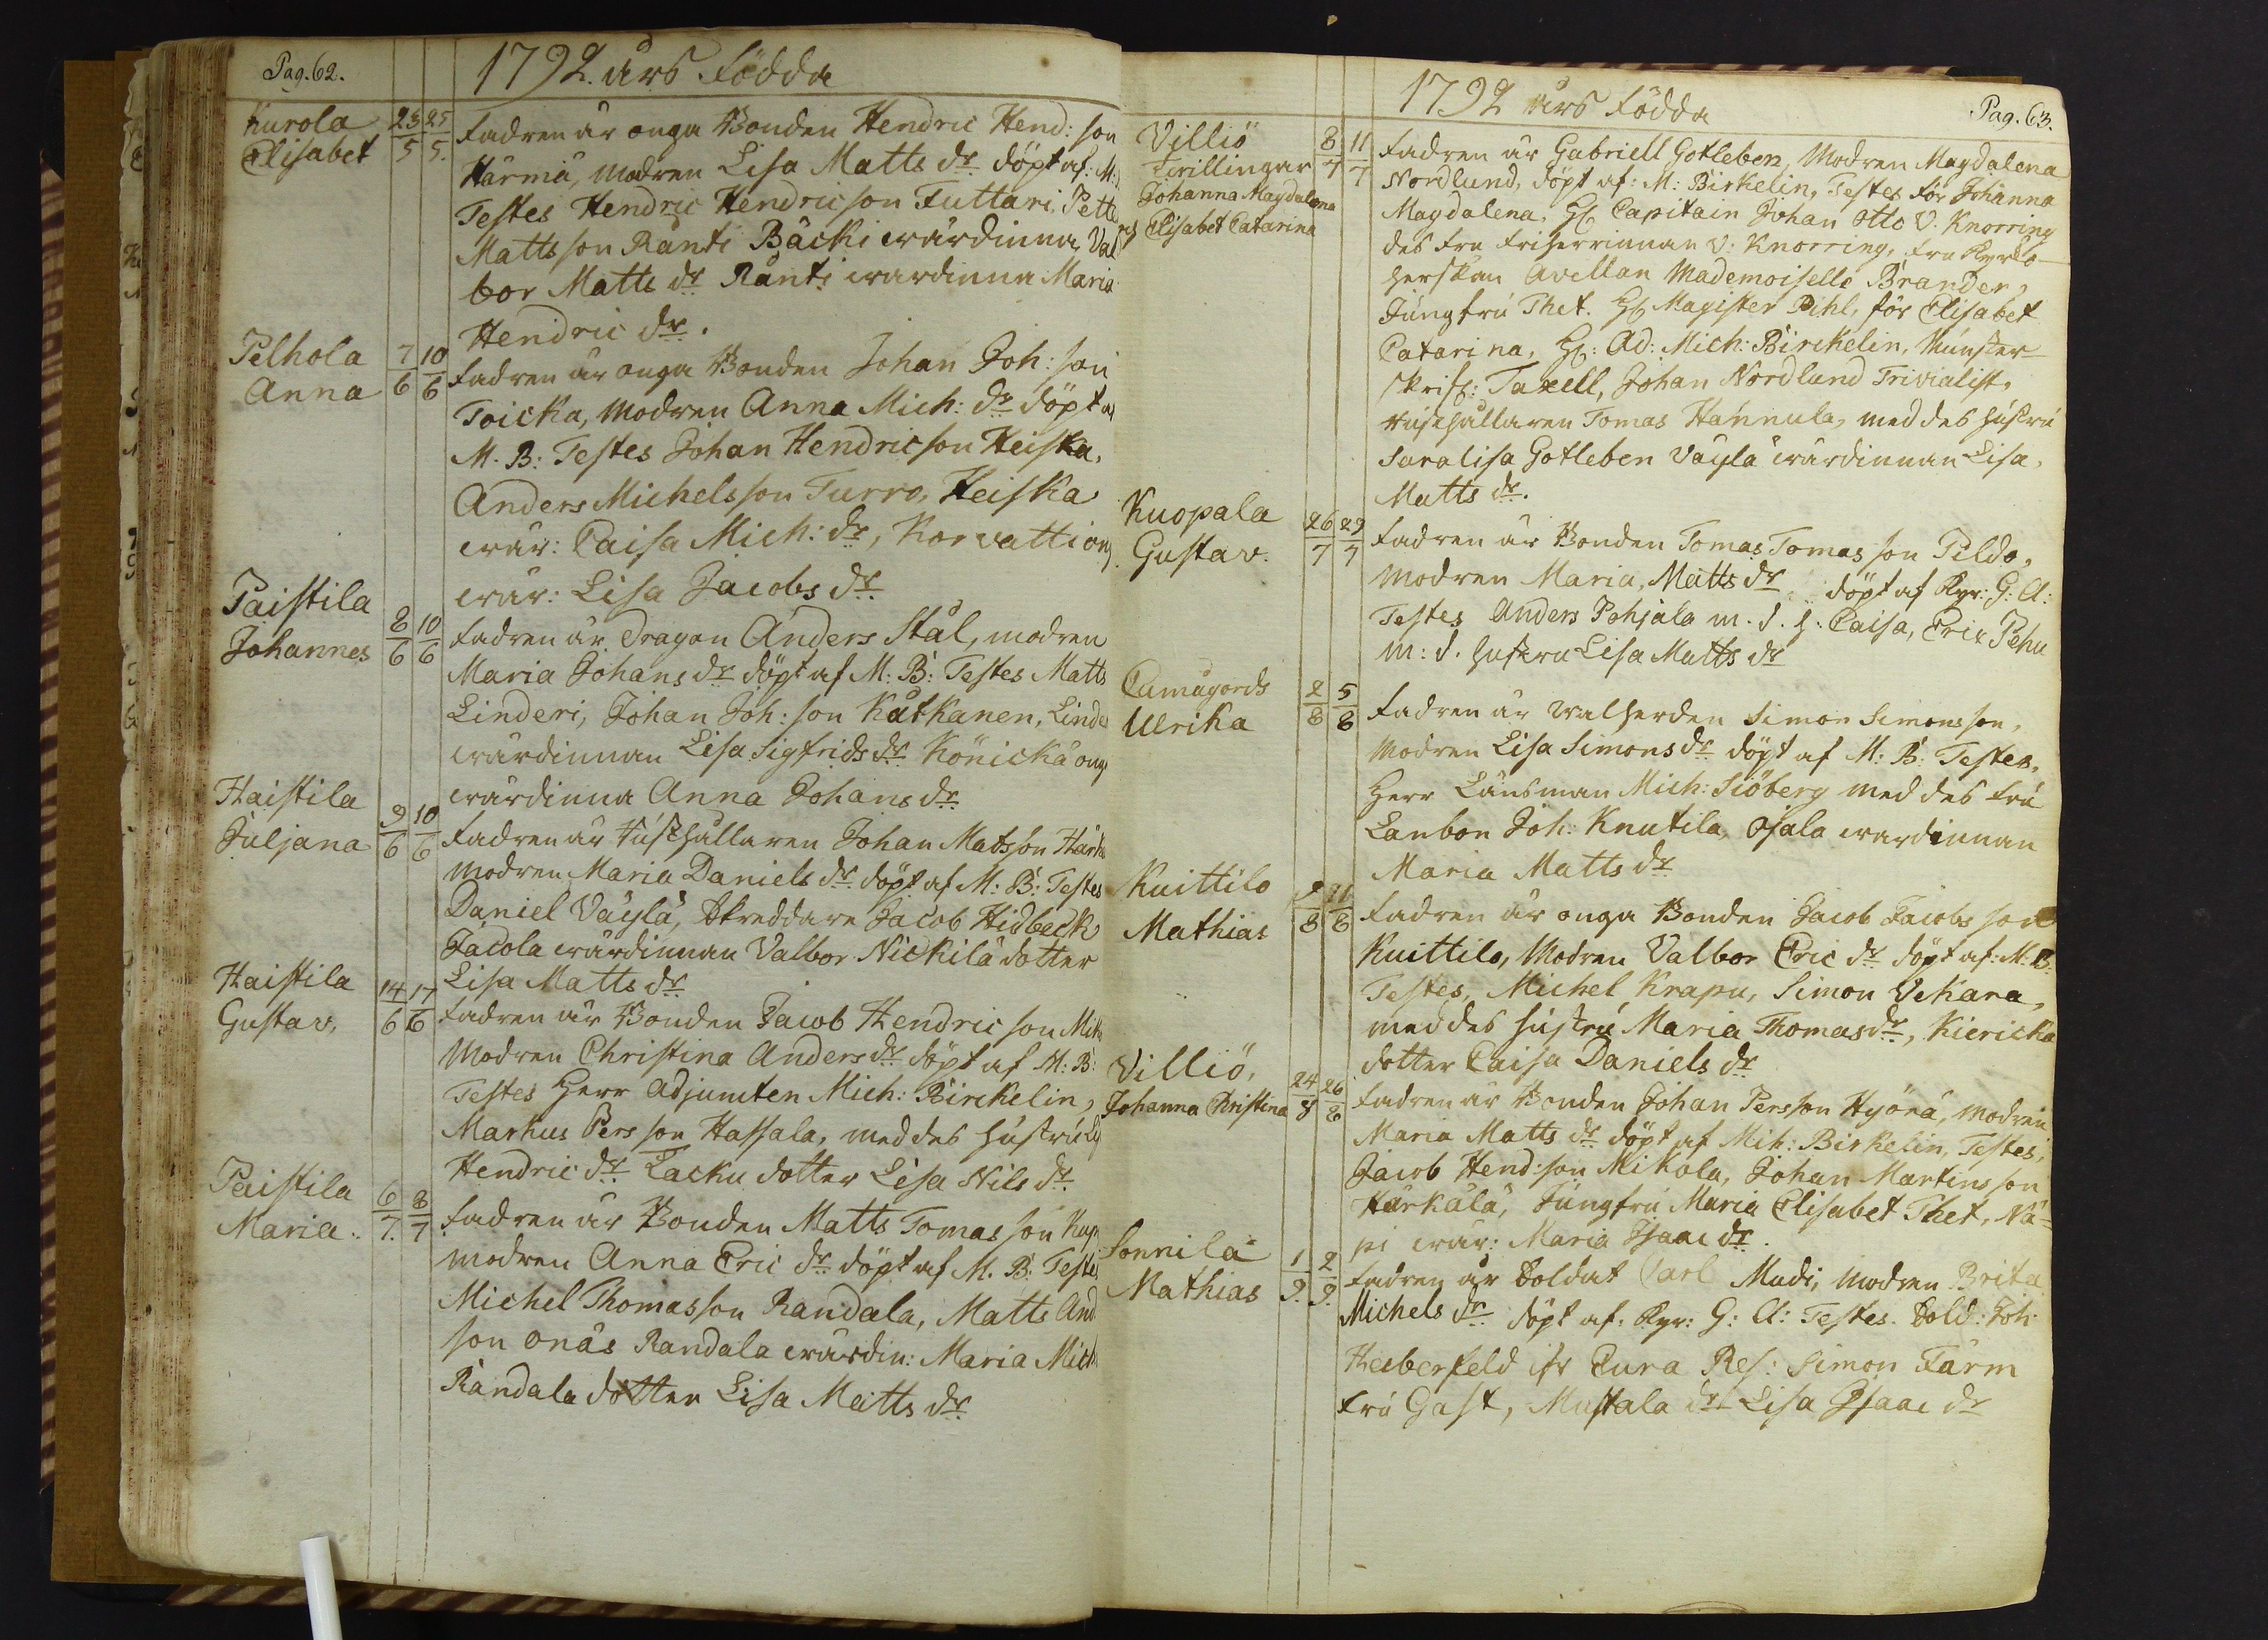 Pag. 62.
1792. års Födda
Kurola
Elisabet
23/5 25/5.
Fadren är unga Bonden Hendric Hend: son
Härmä, Modren Lisa Matts dr. döpt af: M:
Testes Hendric Hendricson Futtari, Pette
Mattsson Ränti Bäcki wärdinna Val
bor Matts dr Ränti wärdinna Maria
Hendric dr.
Pelhola
Anna
7/6 10/6
Fadren är unga Bonden Johan Joh: son
Toicka, Modren Anna Mich: dr döpt a
M. B: Testes Johan Hendricson Heiska,
Anders Michelsson Turro, Heiska
wär: Caisa Mich: dr, Korvatti ong
wär: Lisa Jacobs dr.
Paistila
Johannes
8/6 10/6
Fadren är Dragon Anders Stål, modren
Maria Johans dr döpt af M: B: Testes Matts
Linderi, Johan Joh: son Kätkänen, Linde
wärdinnan Lisa Sigfrids dr. Könickä ong
wärdinna Anna Johans dr.
Haistila
Juljana
9/6 10/6
Fadren är Rusthållaren Johan Matsson Härk
Modren Maria Daniels dr. döpt af M: B: Testes
Daniel Väylä, Skreddare Jacob Hidbeck
Jacola wärdinnan Valbor Nickilä dotter
Lisa Matts dr.
Haistila
Gustav,
14/6 17/6
Fadren är Bonden Jacob Hendric son Mik
Modren Christina Anders dr döpt af M: B:
Testes Herr Adjuncten Mich: Birckelin,
Markus Pers son Hassala, med des hustru Li
Hendric dr. Lacku dotter Lisa Nils dr.
Paistila
Maria.
6/7. 8/7
Fadren är Bonden Matts Tomas son Kup
modren Anna Eric dr. döpt af M. B: Testes
Michel Thomasson Randala, Matts And
son Onäs Randala wärdin: Maria Mich
Randala dotter Lisa Matts dr.
1792 års Födda
Pag. 63.
Villiö
Twillingar
Johanna Magdalena
och Elisabet Catarina
8/7 11/7
Fadren är Gabriell Gotleben, Modren Magdalena
Nordlund, döpt af: M: Birkelin, Testes för Johanna
Magdalena, H: Capitain Johan Otto V. Knorring
des fru Friherrinnan V. Knorring, fru Kyrko-
herskan Avellan Mademoiselle Brander,
Jungfru Thet. H: Magister Pihl, för Elisabet
Catarina, H: Ad: Mich: Birckelin, Munster-
skrif: Taxell, Johan Nordlund Trivialist,
Rusthållaren Tomas Hannula, med des hustru
Saralisa Gotleben Väylä wärdinnan Lisa,
Matts dr.
Kuopala
Gustav.
26/7 29/7
Fadren är Bonden Tomas Tomas son Peldo,
Modren Maria, Matts dr döpt af Kyr: G: A:
Testes Anders Pohjala m. s. h. Caisa, Eric Pehu
m: s. hustru Lisa Matts dr
Cumågords
Ulrika
2/8 5/8
Fadren är Walherden Simon Simons son,
Modren Lisa Simons dr döpt af M: B: Testes,
Herr Länsman Mich: Siöberg med des fru
Lanbon Joh: Knutila, Ojala wärdinnan
Maria Matts dr.
Kuittilo
Mathias
9/8 11/8
Fadren är unga Bonden Jacob Jacobs son
Kuittilo, Modren Valbor Eric dr döpt af: M: B:
Testes, Michel Krapu, Simon Vekara,
med des hustru Maria Thomas dr., Kiericka
dotter Caisa Daniels dr.
Villiö,
Johanna Christina
24/8 26/8
Fadren är Bonden Johan Persson Hyörä, modren
Maria Matts dr döpt af Mih: Birkelin, Testes,
Jacob Hend: son Mikola, Johan Martins son
Härkälä, Jungfru Maria Elisabet Thet, Nä=
pi wär: Maria Isaac dr.
Sonnila
Mathias
1/9. 2/9.
Fadren är Soldat Carl Madi, Modren Brita
Michels dr döpt af: Kyr: G: A: Testes. Sold: Joh:
Heeberfeld ifr Eura Res: Simon Färm
fru Gast, Mustala dr Lisa Isaac dr